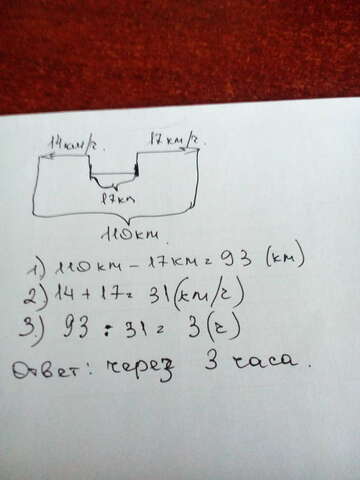 14км/г. 17 км/г.
17км
110км.
1) 110км - 17км = 93 (км)
2) 14 + 17 = 31 (км/г)
3.) 93 : 31 = 3 (г)
Ответ: через 3 часа.